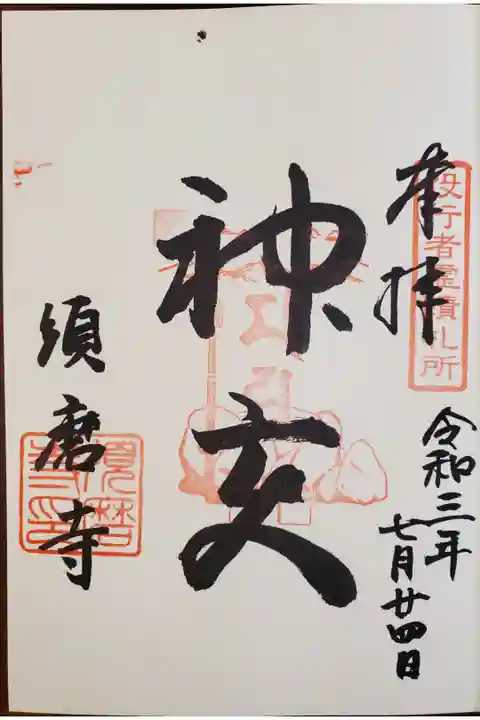 役行者霊蹟札所
奉拝
令和三年
七月廿四日
神変
須磨寺